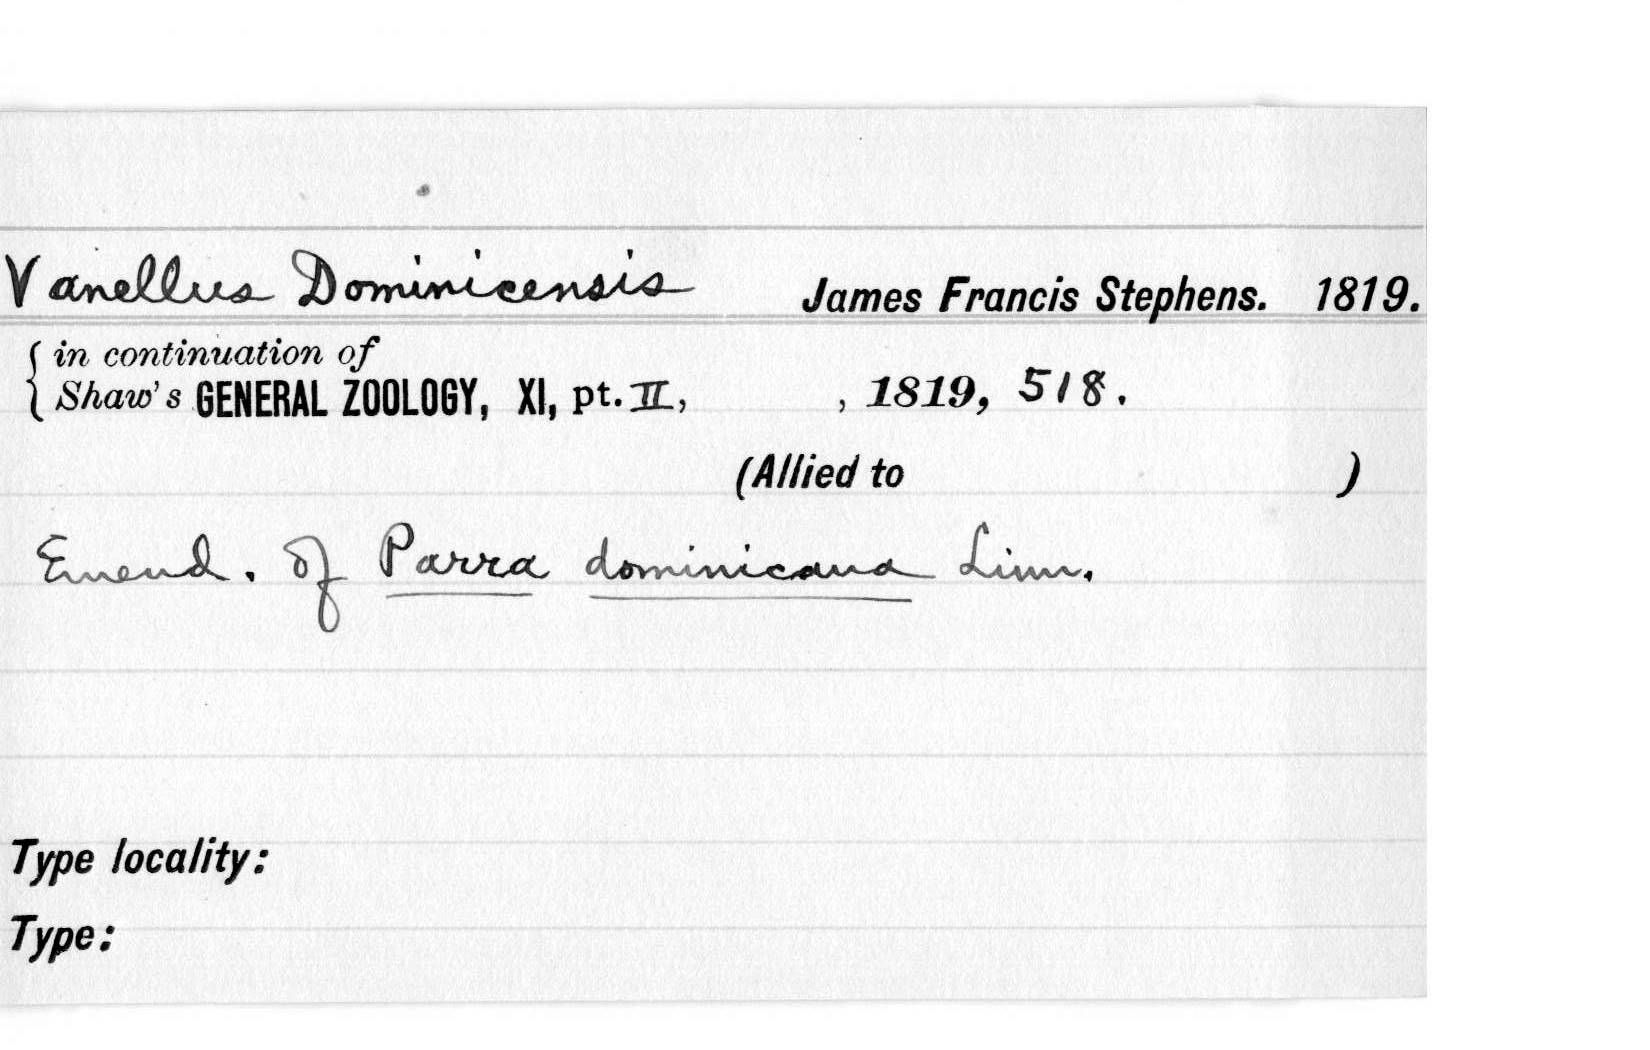 Vanellus Dominicensis James Francis Stephens. 1819.
in continuation of
Shaw's GENERAL ZOOLOGY, XI, pt. II, , 1819, 518.
(Allied to )
Emend. of Parra dominicana Linn.
Type locality:
Type: